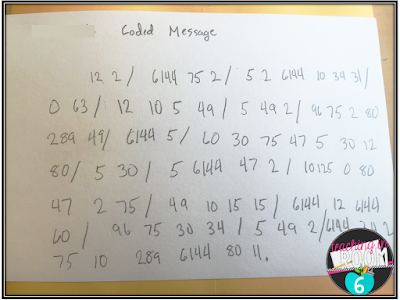 Coded Message
12 2/ 6144 75 2/ 5 2 6144 10 34 31/
0 63/ 12 10 5 49/ 5 49 2/ 96 75 2 80
289 49/ 6144 5/ 60 30 75 47 5 30 12
80/ 5 30/ 5 6144 47 2/ 10125 0 80
47 2 75/ 49 10 15 15/ 6144 12 6144
60/ 96 75 30 34/ 5 49 2/ 6144 2
75 10 289 6144 80 11.
teaching in
ROOM
6